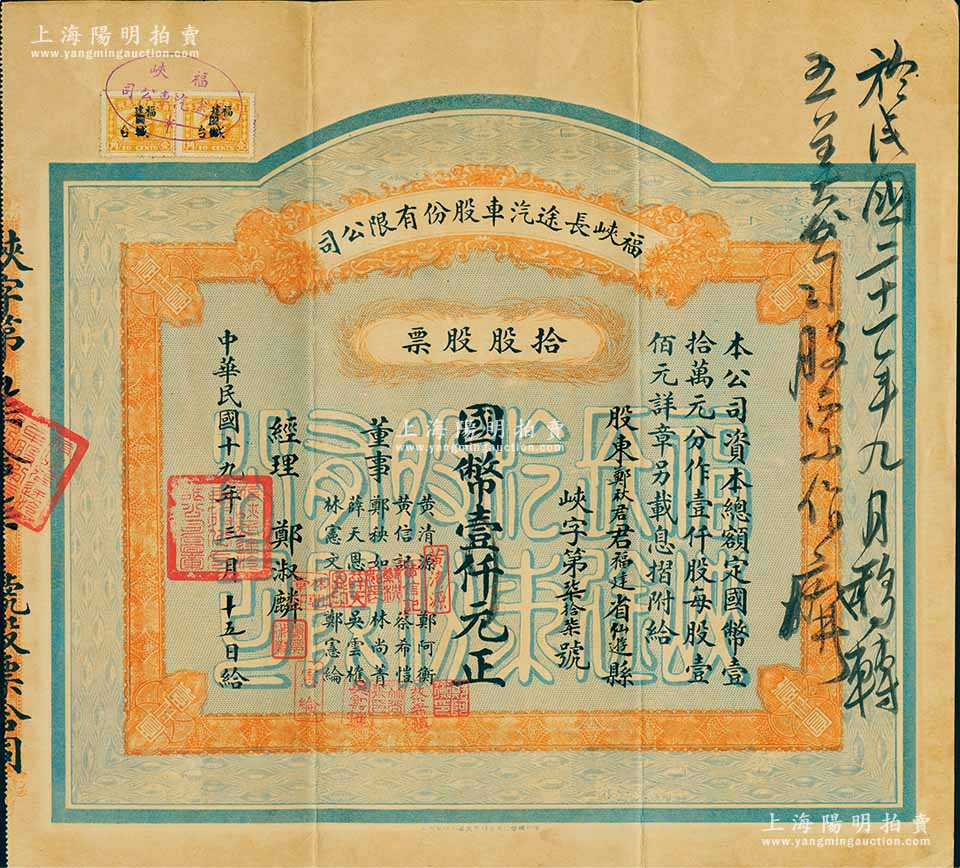 上海陽明拍賣
www.yangmingauction.com
福峽
汽車公司
福建
10 CENTS
福峽長途汽車股份有限公司
拾股股票
本公司資本總額定國幣壹
拾萬元分作壹仟股每股壹
佰元詳章另載息摺附給
股東鄭秋君君福建省仙遊縣
峽字第柒拾柒號
國幣壹仟元正
董事
黄清源 鄭阿衡
黄信記 蔡希愷
鄭秧如 林尚菁
薛天恩 吳雲樵
林憲文 鄭憲綸
經理 鄭淑麟
中華民國十九年三月十五日給
於民國二十一年九月移轉
股
峽字第
號股票合同
上海陽明拍賣
www.yangmingauction.com
上海陽明拍賣
www.yangmingauction.com